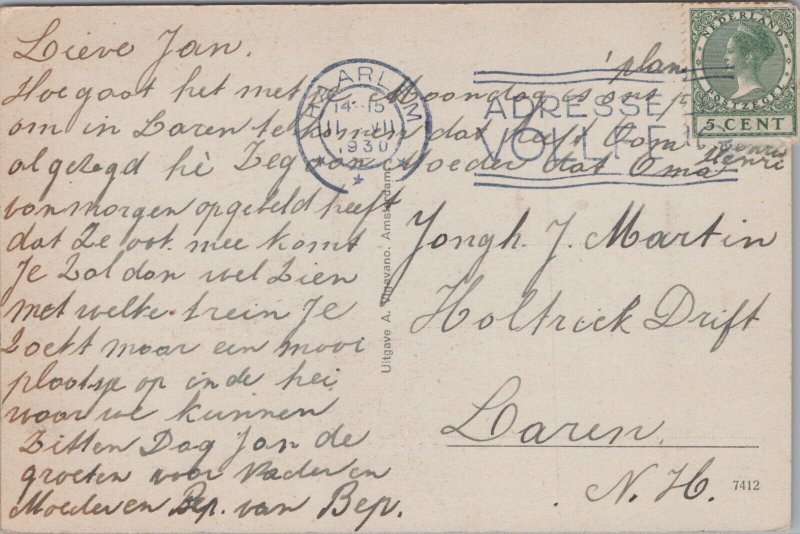 Lieve Jan.
Hoe gaat het met je Maandag is ons plan
om in Laren te komen dat heeft Oom Henri
al gezegd hè Zeg aan Moeder dat Oma
vanmorgen opgebeld heeft
dat Ze ook mee komt
Je Zal dan wel Zien
met welke trein Je
Zoekt maar een mooi
plaatsje op in de hei
waar we kunnen
Zitten Dag Jan de
groeten voor Vader en
Moeder en Bep. van Bep.
HAARLEM
14-15
11 VII
1930
ADRESSEER
VOLLEDIG
NEDERLAND
POSTZEGEL
5 CENT
Jongh. J. Martin
Holtrick Drift
Laren.
N. H.
7412
Uitgave A. Vigevano. Amsterdam